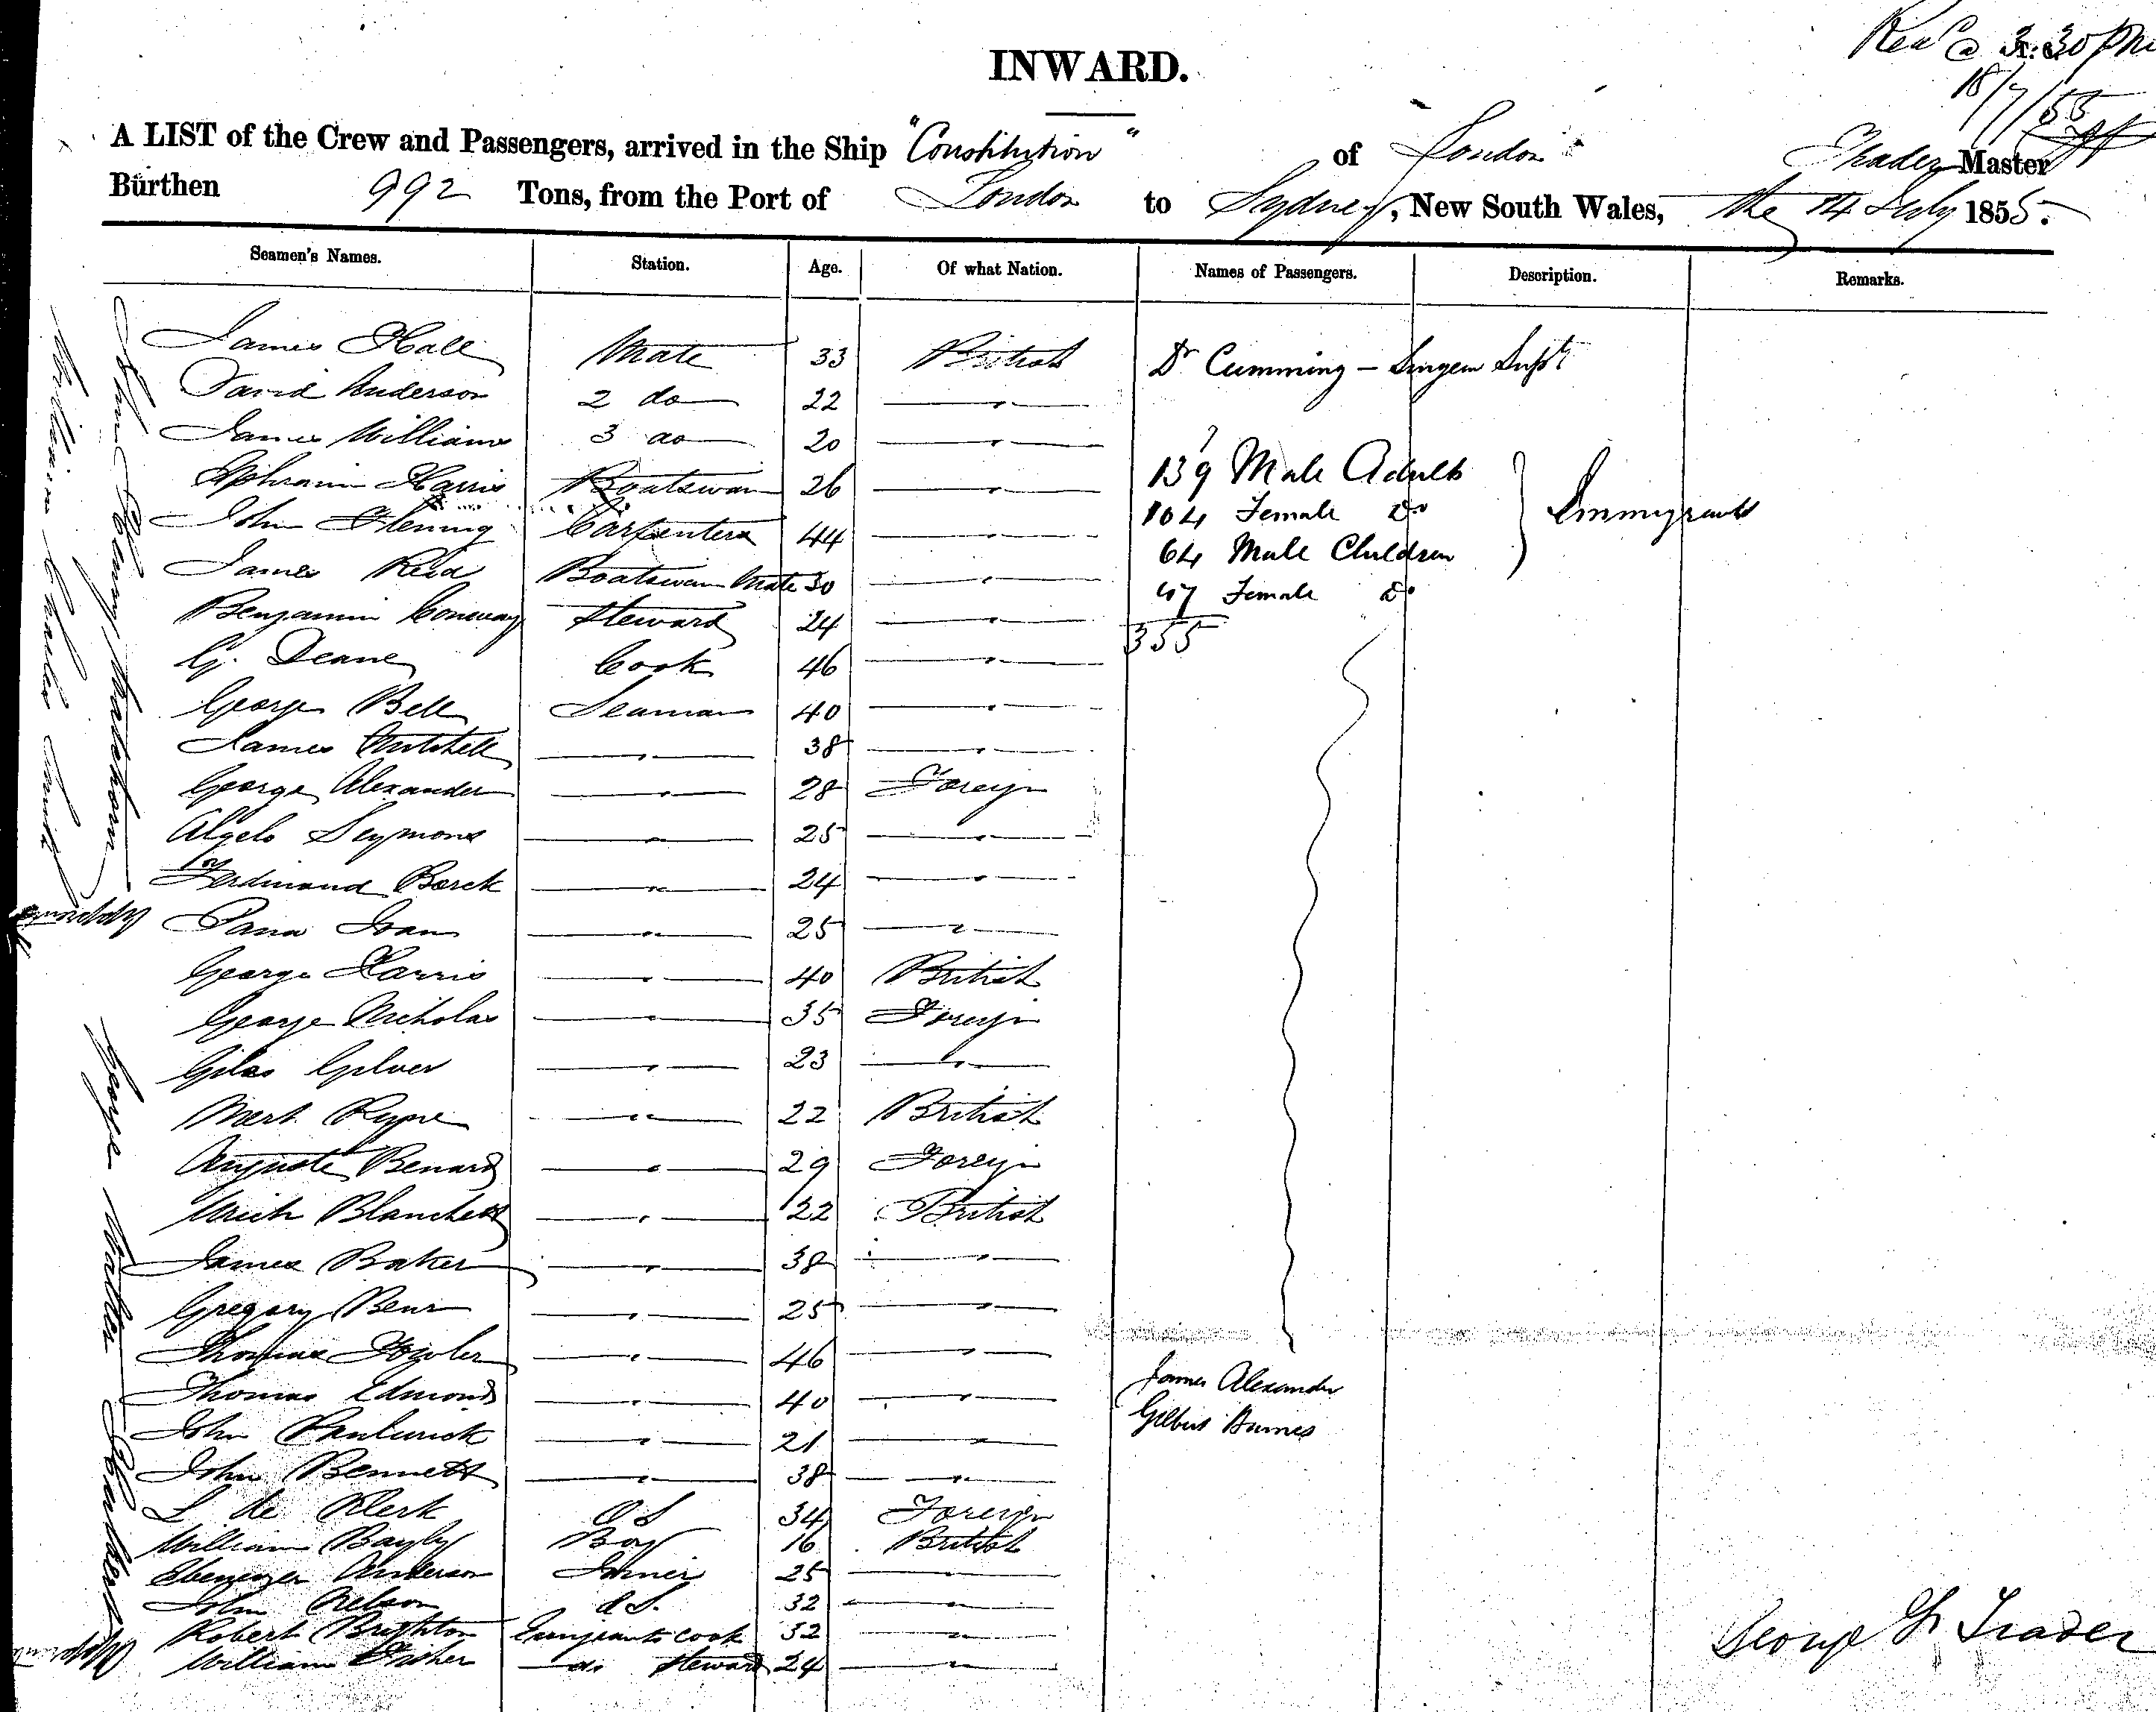 Recd @ 3.30 pm
18/7/55
INWARD.
A LIST of the Crew and Passengers, arrived in the Ship "Constitution" of London Trader Master
Burthen 992 Tons, from the Port of London to Sydney, New South Wales, the 14 July 1855.
Seamen's Names. Station. Age. Of what Nation. Names of Passengers. Description. Remarks.
James Hall Mate 33 British Dr Cumming - Surgeon Supt
David Anderson 2 do 22 "
James Williams 3 do 20 "
Ephraim Harris Boatswain 26 " 139 Male Adults
John Fleming Carpenter 44 " 104 Female Do Immigrants
James Reid Boatswain Mate 30 " 64 Male Children
Benjamin Conway Steward 24 " 47 Female Do
G. Deane Cook 46 " 355
George Bell Seaman 40 "
James Mitchell " 38 "
George Alexander " 28 Foreign
Algelo Seymons " 25 "
Ferdinand Borck " 24 "
Pana Ioan " 25 "
George Harris " 40 British
George Nicholas " 35 Foreign
Giles Gilver " 23 "
Mark " 22 British
Auguste Benard " 29 Foreign
Blanchett " 22 British
James Baker " 38 "
Gregory Benr " 25 "
Thomas Fowler " 46 "
Thomas Edmonds " 40 " James Alexander
John " 21 " Gilbert Barnes
John Bennett " 38 "
L de Klerk O S 34 Foreign
William Bayly Boy 16 British
Ebenezer Anderson Joiner 25 "
John Nelson O S. 32 "
Robert Brighton Emigrants cook 32 "
William Fisher do Steward 24 "
George Trader
John Henry Markham
William Charles Smith
Apprentice
George Walter Chambers
Apprentice